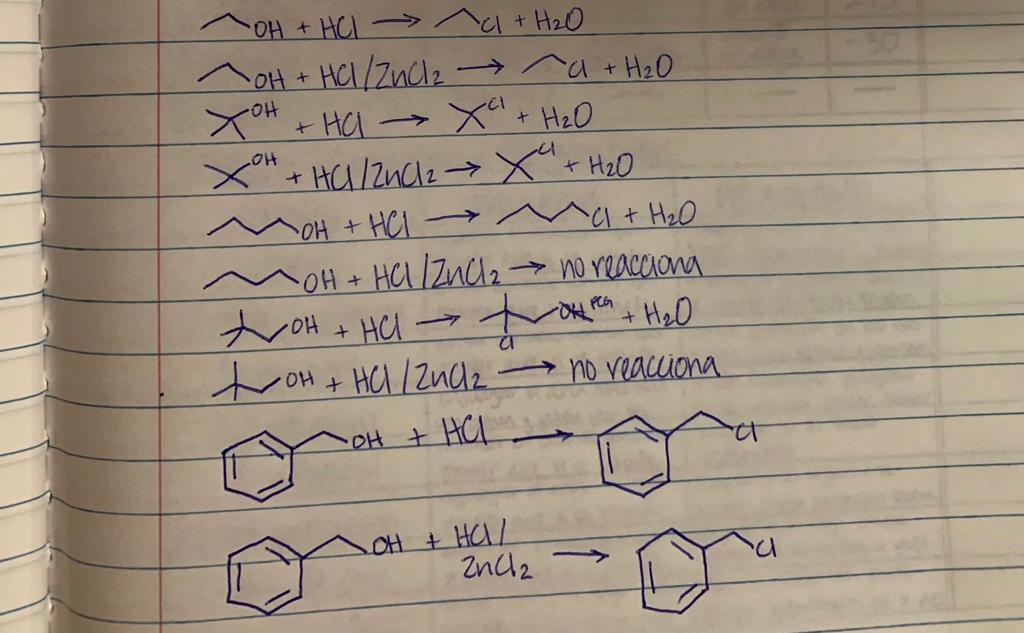 OH + HCl → Cl + H2O
OH + HCl/ZnCl2 → Cl + H2O
OH + HCl → Cl + H2O
OH + HCl/ZnCl2 → Cl + H2O
OH + HCl → Cl + H2O
OH + HCl/ZnCl2 → no reacciona
OH + HCl → Cl + H2O
OH + HCl/ZnCl2 → no reacciona
OH + HCl → Cl
OH + HCl/ZnCl2 → Cl